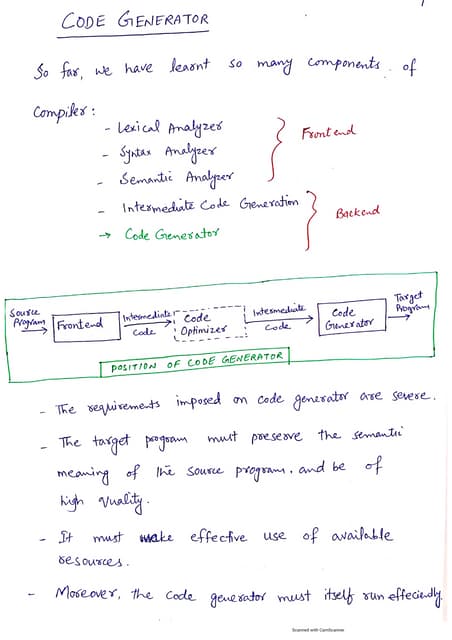 CODE GENERATOR
So far, we have learnt so many components of
Compiler:
- Lexical Analyzer
- Syntax Analyzer
- Semantic Analyzer
Frontend
- Intermediate Code Generation
→ Code Generator
Backend
Source Program
Frontend
Intermediate Code
Code Optimizer
Intermediate Code
Code Generator
Target Program
POSITION OF CODE GENERATOR
- The requirements imposed on code generator are severe.
- The target program must preserve the semantic
meaning of the source program. and be of
high quality.
- It must make effective use of available
resources.
- Moreover, the code generator must itself run effeciently.
Scanned with CamScanner